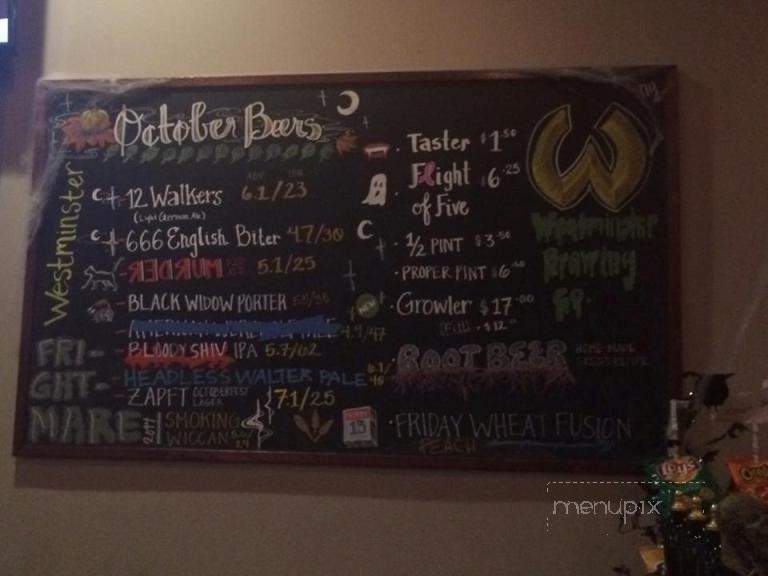 October Beers
Westminster
ABV IBU
12 Walkers 6.1/23
(Light German Ale)
666 English Biter 4.7/30
MURDER RED 5.1/25
BLACK WIDOW PORTER
4.9/47
BLOODY SHIV IPA 5.7/62
HEADLESS WALTER PALE 6.1/
ZAPFT OCTOBERFEST LAGER 7.1/25
FRI-
GHT-
MARE
2017
SMOKING
WICCAN
13
Taster $1.50
Flight $6.25
of Five
1/2 PINT $3.50
PROPER PINT $6
Growler $17.00
Fill $12
ROOT BEER HOME-MADE
SECRET RECIPE
FRIDAY WHEAT FUSION
PEACH
W
Westminster
Brewing
Co.
menupix